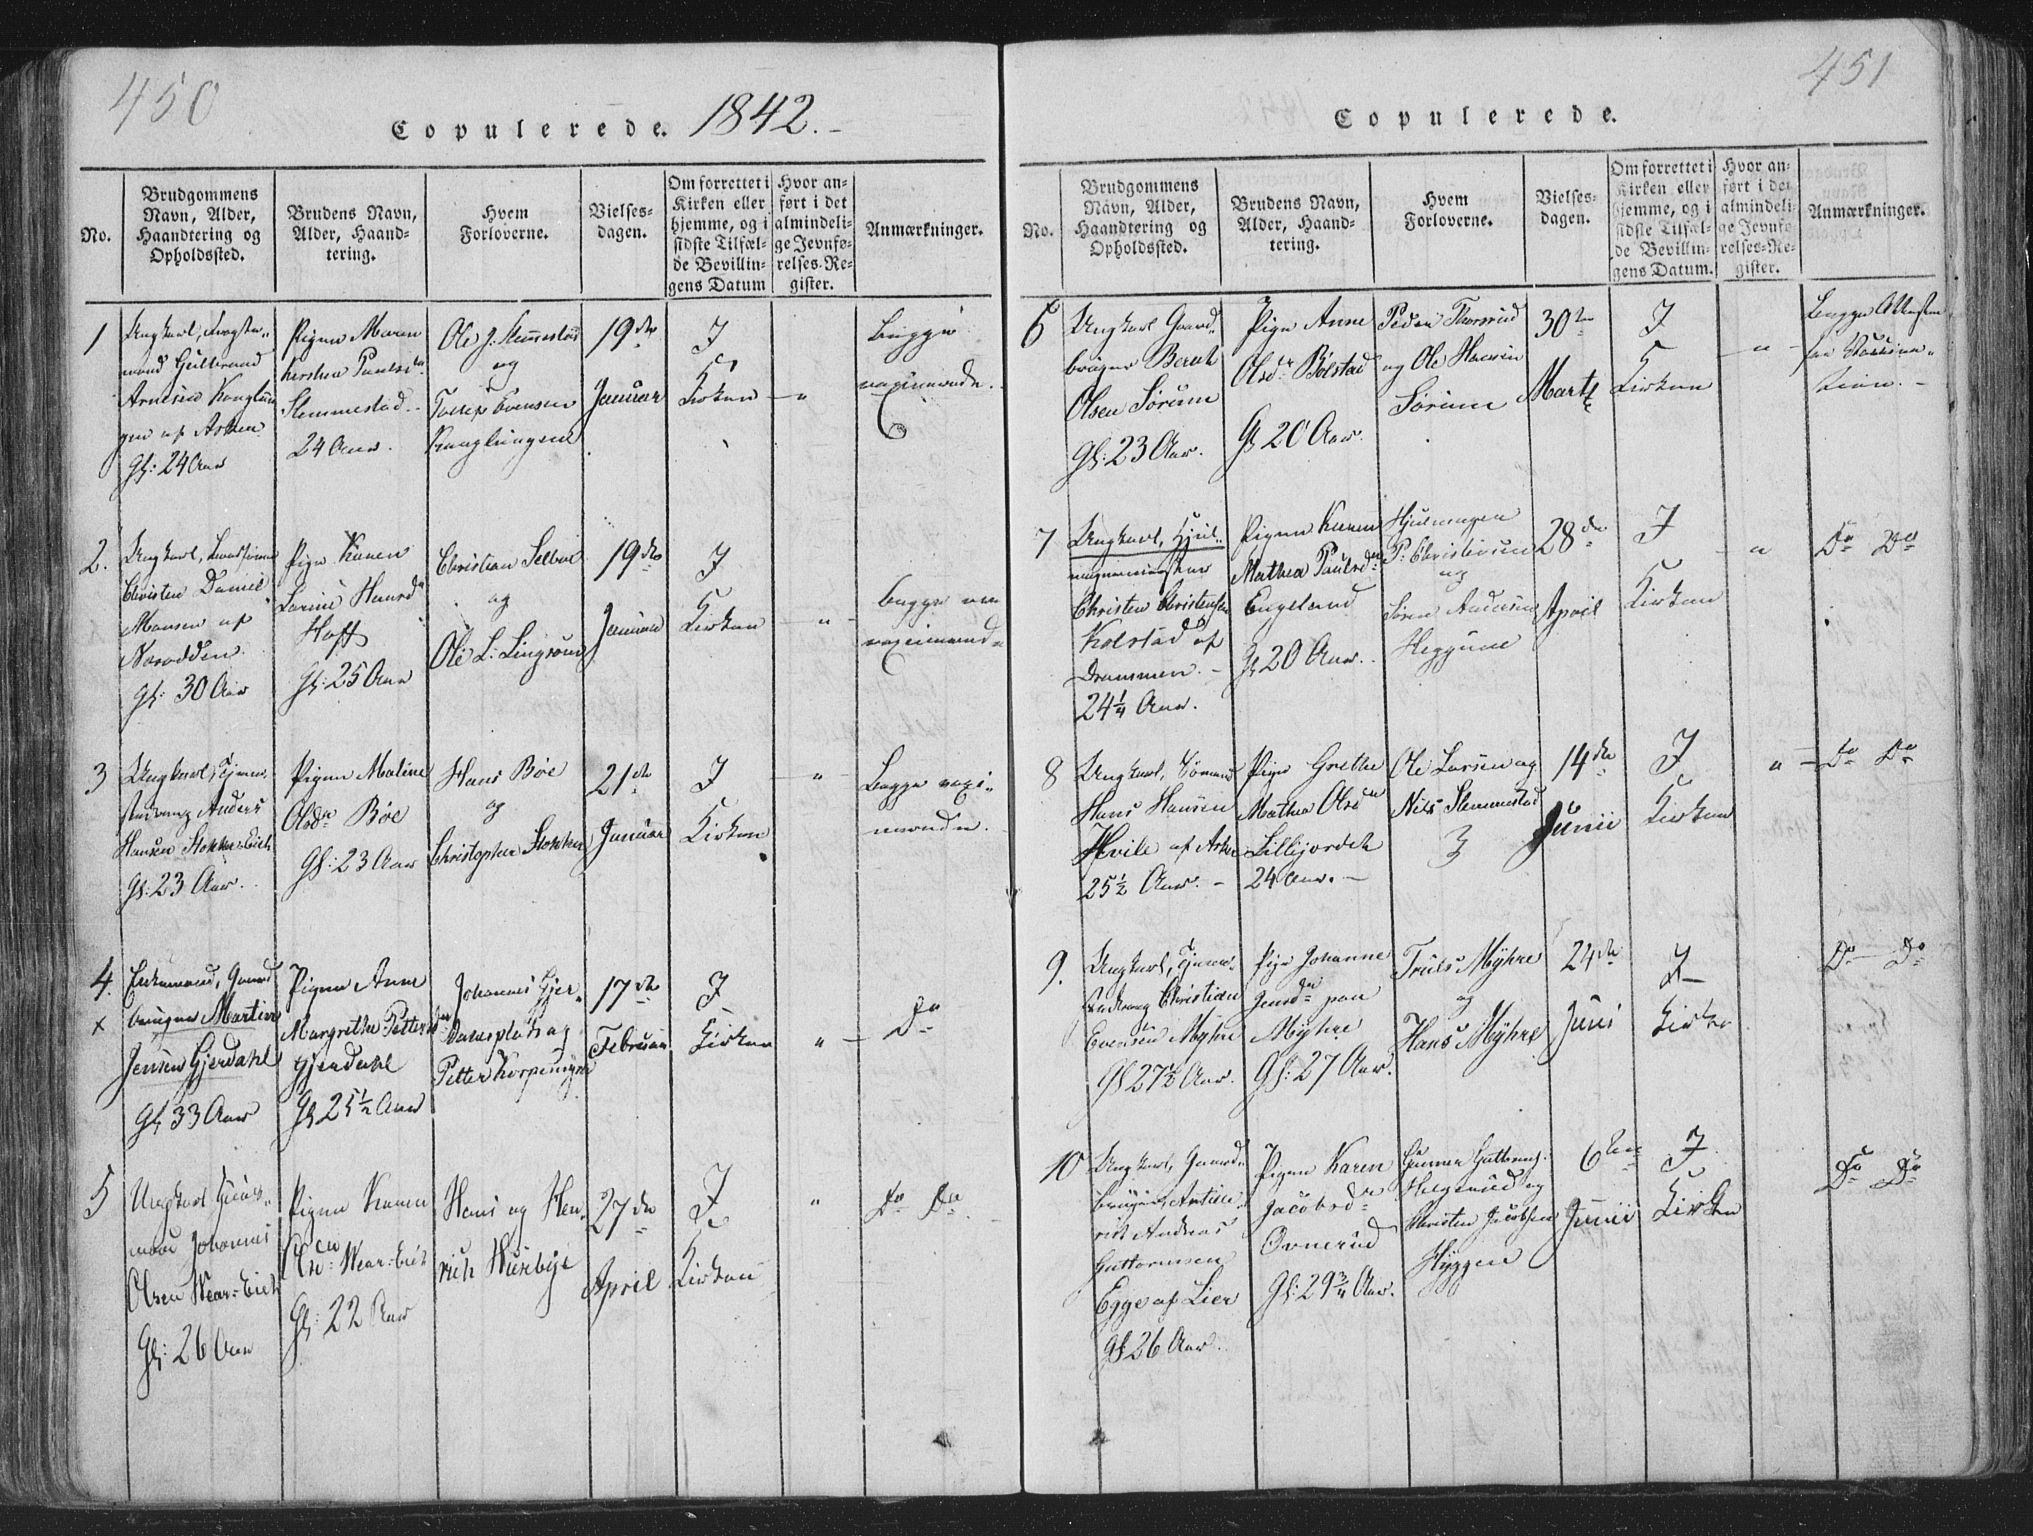 450
Copulerede. 1842.
No.
Brudgommens
Navn, Alder,
Haandtering og
Opholdssted.
Brudens Navn,
Alder, Haand-
tering.
Hvem
Forloverne.
Vielses-
dagen.
Om forrettet i
Kirken eller
hjemme, og i
sidste Tilfæl-
de Bevillin-
gens Datum
Hvor an-
ført i det
almindeli-
ge Jevnfø-
relses-Re-
gister.
Anmærkninger.
1
Ungkarl,
Gulbrand
Arnesen
af Asker
Gl: 24 Aar
Pigen Maren
Paulsdr
Slemmestad
24 Aar.
Ole J. Slemmestad
og
Evensen
19de
Januar
I
Kirken
"
Begge
vaxinerede.
2.
Ungkarl,
Christen Daniel
Monsen af
Gl: 30 Aar
Pige Karen
Larine Hansdr
Hoff
Gl: 25 Aar
Christian Selvig
og
Ole L.
19de
Januar
I
Kirken
"
Begge
3
Ungkarl, Tjene-
Anders
Hansen
Gl: 23 Aar.
Pigen Maline
Olsdr Böe
Gl: 23 Aar
Hans Böe
og
Christopher Stokker
21de
Januar
I
Kirken
"
Begge vaxi-
nerede.
4.
x
Enkemand, Gaard
bruger Martin
Jensen Gjerdahl
Gl 33 Aar
Pigen Anne
Margrethe Petters
Gjerdahl
Gl 25½ Aar
Johannes Gjer-
og
Petter
17de
Februar
I
Kirken
"
Do
5
Ungkarl Huus-
mand Johannes
Olsen
Gl: 26 Aar
Pigen Karen
Gl: 22 Aar
Hans og Hen-
rich Huseby
27de
April
I
Kirken
"
Do Do
451
Copulerede.
No.
Brudgommens
Navn, Alder,
Haandtering og
Opholdssted.
Brudens Navn,
Alder, Haand-
tering.
Hvem
Forloverne.
Vielses-
dagen.
Om forrettet i
Kirken eller
hjemme, og i
sidste Tilfæl-
de Bevillin-
gens Datum.
Hvor an-
ført i det
almindeli-
ge Jevnfø-
relses-Re-
gister.
Anmærkninger.
6
Ungkarl Gaard-
bruger Bernt
Olsen Sörum
Gl: 23 Aar.
Pige Anne
Olsdr Bölstad
Gl 20 Aar.
Peder Thorsrud
og Ole Hansen
Sörum
30te
Marts
I
Kirken
"
Begge Attester
for Vaccina-
tion.
7
Ungkarl, Hjul-
Christen Christensen
Kolstad af
Drammen.
24¼ Aar.
Pigen Karen
Mathea Paulsdr
Engeland
Gl 20 Aar.
P: Christensen
og
Sören Andersen
Heggum
28de
April
I
Kirken
"
Do Do
8
Ungkarl, Sömand
Hans Hansen
Hvile af Asker
25½ Aar.
Pige Grethe
Mathea Olsdr
Lillejordet
24 Aar.
Ole Larsen og
Nils Slemmestad
14de
Junii
I
Kirken
"
Do Do
9.
Ungkarl, Tjene-
Christian
Evensen Myhre
Gl 27½ Aar.
Pige Johanne
Jensdr paa
Myhre
Gl: 27 Aar.
Truls Myhre
og
Hans Myhre
24de
Juni
I
Kirke
Do Do
10
Ungkarl, Gaard-
bruger
Andreas
Guttormsen
Egge af Lier
Gl 26 Aar.
Pigen Karen
Jacobsdr
Ovnerud
Gl: 29¾ Aar.
Gunner
Helgerud og
Christen Jacobsen
Hyggen
6te
Junii
I
Kirken
Do Do